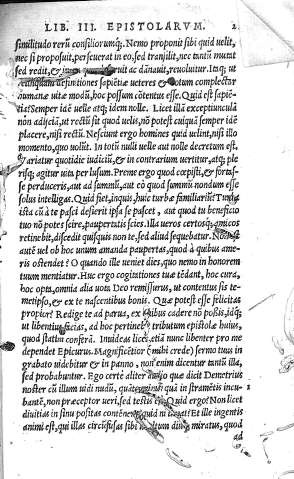 LIB. III. EPISTOLARVM. 2
similitudo rerũ consiliorumq;. Nemo proponit sibi quid uelit,
nec si proposuit, perseuerat in eo, sed transilit, nec tantũ mutat
sed redit, & in ac dãnauit, reuoluitur. Itaq; ut
relinquam definitiones sapiẽtiæ ueteres & totum complectar
humanæ uitæ modũ, hoc possum cõtentus esse. Quid est sapiẽ-
tia? Semper idẽ uelle atq; idem nolle. Licet illã exceptiunculã
non adijciã, ut rectũ sit quod uelis, nõ potest cuiquã semper idẽ
placere, nisi rectũ. Nesciunt ergo homines quid uelint, nisi illo
momento, quo uolũt. In totũ nulli uelle aut nolle decretum est,
Variatur quotidie iudiciũ, & in contrarium uertitur, atq; ple
risq; agitur uita per lusum. Preme ergo quod cœpisti, & fortas-
se perduceris, aut ad summũ, aut eò quod summũ nondum esse
solus intelligas. Quid fiet, inquis, huic turbæ familiariũ? Turba
ista cũ à te pasci desierit ipsa se pascet, aut quod tu beneficio
tuo nõ potes scire, paupertatis scies. Illa ueros certosq; amicos
retinebit, discedit quisquis non te, sed aliud sequebatur. Non
autẽ uel ob hoc unum amanda paupertas, quòd à quibus ame-
ris ostendet? O quando ille ueniet dies, quo nemo in honorem
tuum mentiatur. Huc ergo cogitationes tuæ tẽdant, hoc cura,
hoc opta, omnia alia uota Deo remissurus, ut contentus sis te-
metipso, & ex te nascentibus bonis. Quæ potest esse felicitas
propior? Redige te ad parua, ex quibus cadere nõ possis, idq;
ut libentius facias, ad hoc pertinebit tributum epistolæ huius,
quod statim conferã. Inuideas licet, etiã nunc libenter pro me
dependet Epicurus. Magnificẽtior (mihi crede) sermo tuus in
grabato uidebitur & in panno, non enim dicentur tantũ illa,
sed probabuntur. Ego certè aliter audio quæ dicit Demetrius
noster cũ illum uidi nudũ, quãto in stramẽtis incu-
bantẽ, non præceptor ueri, sed testis est. Quid ergo? Non licet
diuitias in sinu positas contẽnere? Quid ni liceat? Et ille ingentis
animi est, qui illas circũfusas sibi multum diuq; miratus, quod
ad